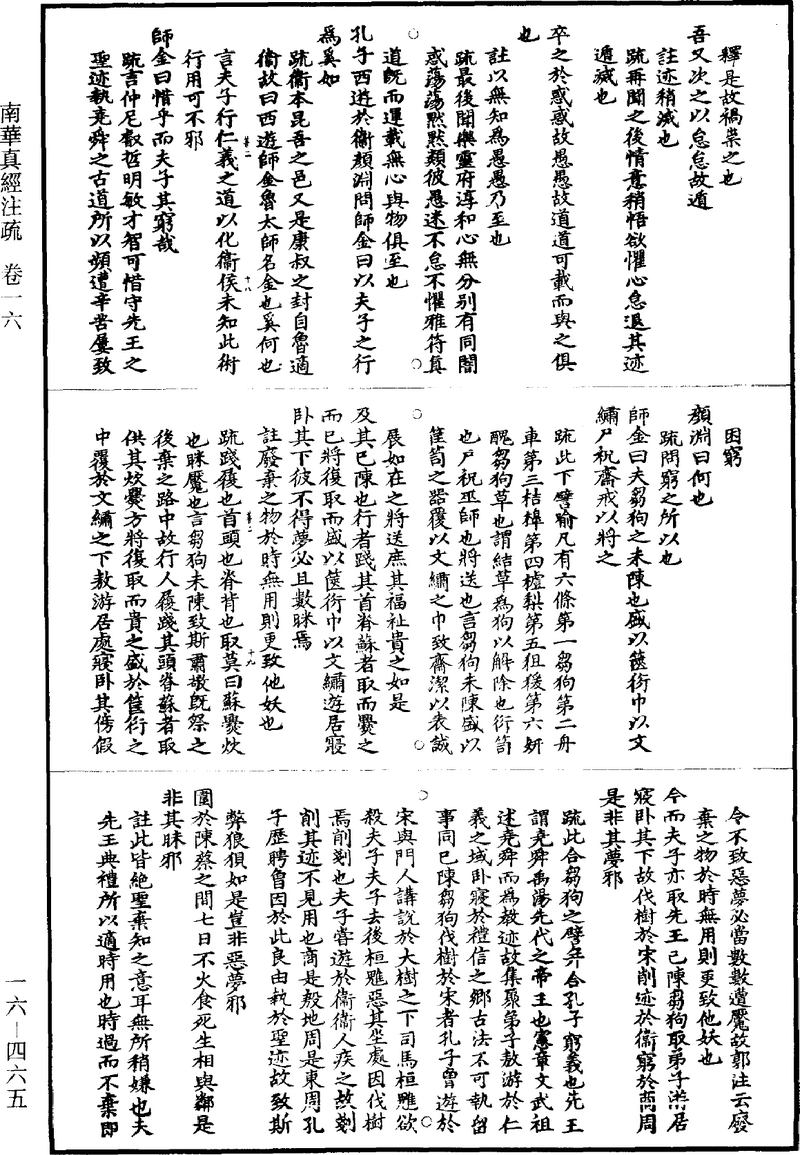 釋是故禍祟之也
吾又次之以怠怠故遁
註迹稍滅也
疏再聞之後情意稍悟欲懼心怠退其迹
遁滅也
卒之於惑惑故愚愚故道道可載而與之俱
也
註以無知為愚愚乃至也
疏最後聞樂靈府淳和心無分別有同闇
惑蕩蕩默默類彼愚迷不怠不懼雅符真
道既而運載無心與物俱至也
孔子西遊於衛顏淵問師金曰以夫子之行
為奚如
疏衛本昆吾之邑又是康叔之封自魯適
衛故曰西遊師金魯太師名金也奚何也
言夫子行仁義之道以化衛侯未知此術
行用可不邪
師金曰惜乎而夫子其窮哉
疏言仲尼叡哲明敏才智可惜守先王之
聖迹執堯舜之古道所以頻遭辛苦屢致
困窮
顏淵曰何也
疏問窮之所以也
師金曰夫芻狗之未陳也盛以篋衍巾以文
繡尸祝齋戒以將之
疏此下譬喻凡有六條第一芻狗第二舟
車第三桔槔第四樝梨第五狙猨第六妍
醜芻狗草也謂結草為狗以解除也衍笥
也尸祝巫師也將送也言芻狗未陳盛以
筐笥之器覆以文繡之巾致齋潔以表誠
展如在之將送庶其福祉貴之如是
及其已陳也行者踐其首脊蘇者取而爨之
而已將復取而盛以篋衍巾以文繡遊居寢
臥其下彼不得夢必且數眯焉
註廢棄之物於時無用則更致他妖也
疏踐履也首頭也脊背也取草曰蘇爨炊
也眯魘也言芻狗未陳致斯肅敬既祭之
後棄之路中故行人履踐其頭脊蘇者取
供其炊爨方將復取而貴之盛於筐衍之
中覆於文繡之下敖游居處寢臥其傍假
令不致惡夢必當數數遭魘故郭注云廢
棄之物於時無用則更致他妖也
今而夫子亦取先王已陳芻狗取弟子游居
寢臥其下故伐樹於宋削迹於衛窮於商周
是非其夢邪
疏此合芻狗之譬并合孔子窮義也先王
謂堯舜禹湯先代之帝王也憲章文武祖
述堯舜而為教迹故集聚弟子敖游於仁
義之域臥寢於禮信之鄉古法不可執留
事同已陳芻狗伐樹於宋者孔子曾遊於
宋與門人講說於大樹之下司馬桓魋欲
殺夫子夫子去後桓魋惡其坐處因伐樹
焉削剗也夫子嘗遊於衛衛人疾之故剗
削其迹不見用也商是殷地周是東周孔
子歷聘魯因於此良由執於聖迹故致斯
弊狼狽如是豈非惡夢邪
圍於陳蔡之間七日不火食死生相與鄰是
非其眯邪
註此皆絕聖棄知之意耳無所稍嫌也夫
先王典禮所以適時用也時過而不棄即
南華真經注疏 卷一六
一六－四六五